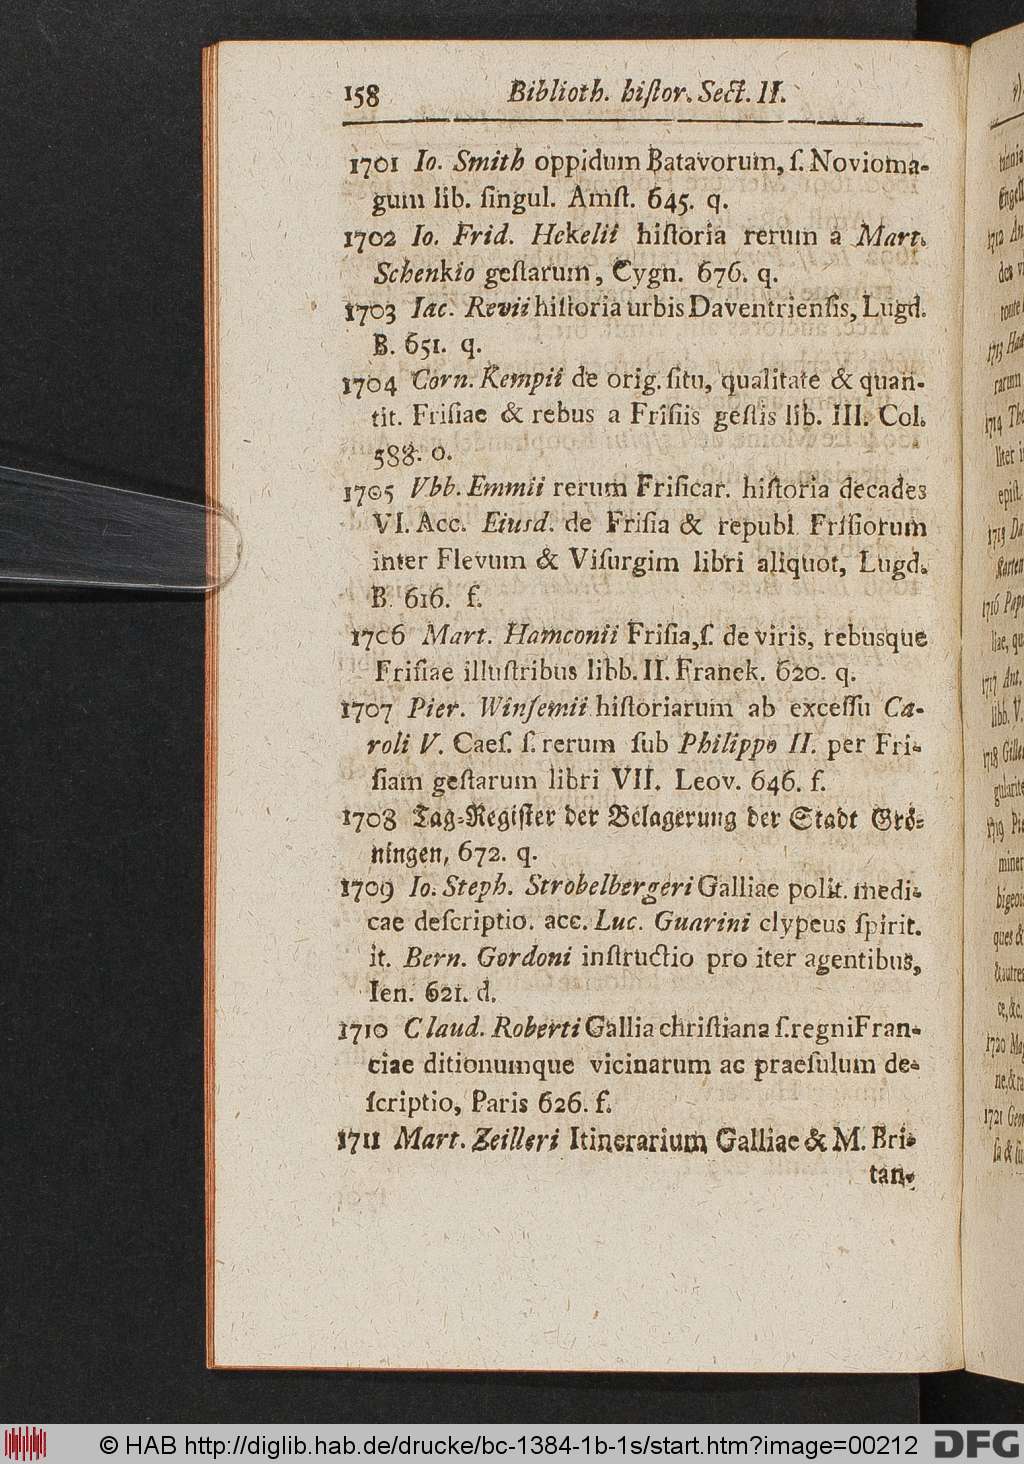 158 Biblioth. hiſtor. Sect. II.
1701 Io. Smith oppidum Batavorum, ſ. Novioma-
gum lib. ſingul. Amſt. 645. q.
1702 Io. Frid. Hekelii hiſtoria rerum a Mart.
Schenkio geſtarum, Cygn. 676. q.
1703 Iac. Revii hiſtoria urbis Daventrienſis, Lugd.
B. 651. q.
1704 Corn. Kempii de orig. ſitu, qualitate & quan-
tit. Friſiae & rebus a Friſiis geſtis lib. III. Col.
588. o.
1705 Vbb. Emmii rerum Friſicar. hiſtoria decades
VI. Acc. Eiusd. de Friſia & republ Friſiorum
inter Flevum & Viſurgim libri aliquot, Lugd.
B. 616. f.
1706 Mart. Hamconii Friſia, ſ. de viris, rebusque
Friſiae illuſtribus libb. II. Franek. 620. q.
1707 Pier. Winſemii hiſtoriarum ab exceſſu Ca-
roli V. Caeſ. ſ. rerum ſub Philippo II. per Fri-
ſiam geſtarum libri VII. Leov. 646. f.
1708 Tag-Regiſter der Belagerung der Stadt Grö-
ningen, 672. q.
1709 Io. Steph. Strobelbergeri Galliae polit. medi-
cae deſcriptio. acc. Luc. Guarini clypeus ſpirit.
it. Bern. Gordoni inſtructio pro iter agentibus,
Ien. 621. d.
1710 Claud. Roberti Gallia chriſtiana ſ. regni Fran-
ciae ditionumque vicinarum ac praeſulum de-
ſcriptio, Paris 626. f.
1711 Mart. Zeilleri Itinerarium Galliae & M. Bri-
tan-
© HAB http://diglib.hab.de/drucke/bc-1384-1b-1s/start.htm?image=00212 DFG